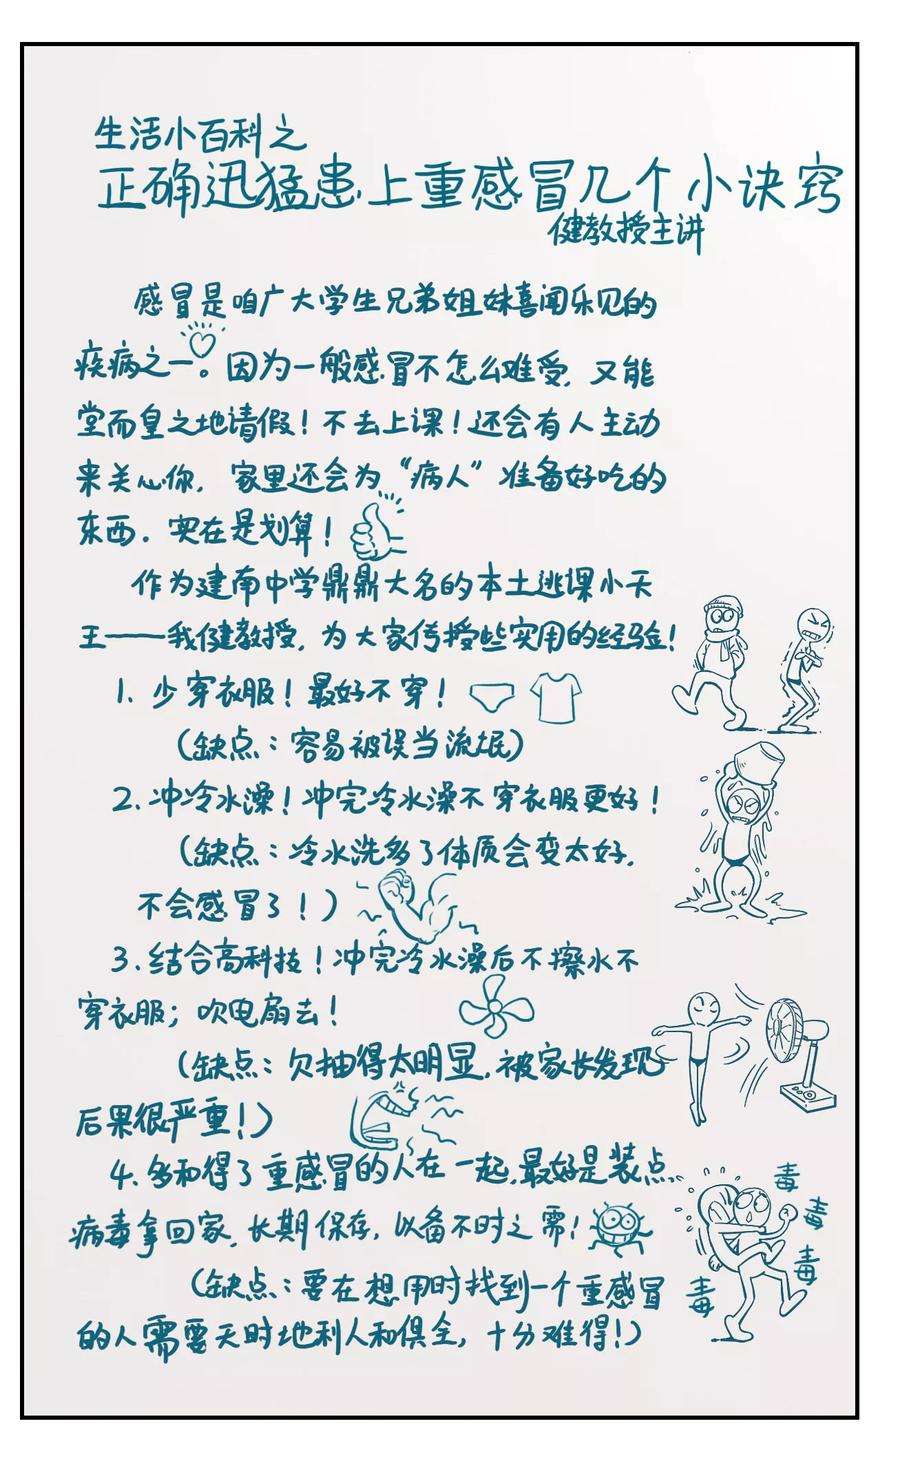 生活小百科之
正确迅猛患上重感冒几个小诀窍
健教授主讲
感冒是咱广大学生兄弟姐妹喜闻乐见的
疾病之一。因为一般感冒不怎么难受，又能
堂而皇之地请假！不去上课！还会有人主动
来关心你，家里还会为“病人”准备好吃的
东西。实在是划算！
作为建南中学鼎鼎大名的本土逃课小天
王——我健教授，为大家传授些实用的经验！
1. 少穿衣服！最好不穿！
（缺点：容易被误当流氓）
2. 冲冷水澡！冲完冷水澡不穿衣服更好！
（缺点：冷水洗多了体质会变太好，
不会感冒了！）
3. 结合高科技！冲完冷水澡后不擦水不
穿衣服；吹电扇去！
（缺点：欠抽得太明显，被家长发现
后果很严重！）
4. 多和得了重感冒的人在一起，最好是装点
病毒拿回家，长期保存，以备不时之需！
（缺点：要在想用时找到一个重感冒
的人需要天时地利人和俱全，十分难得！）
毒
毒
毒
毒